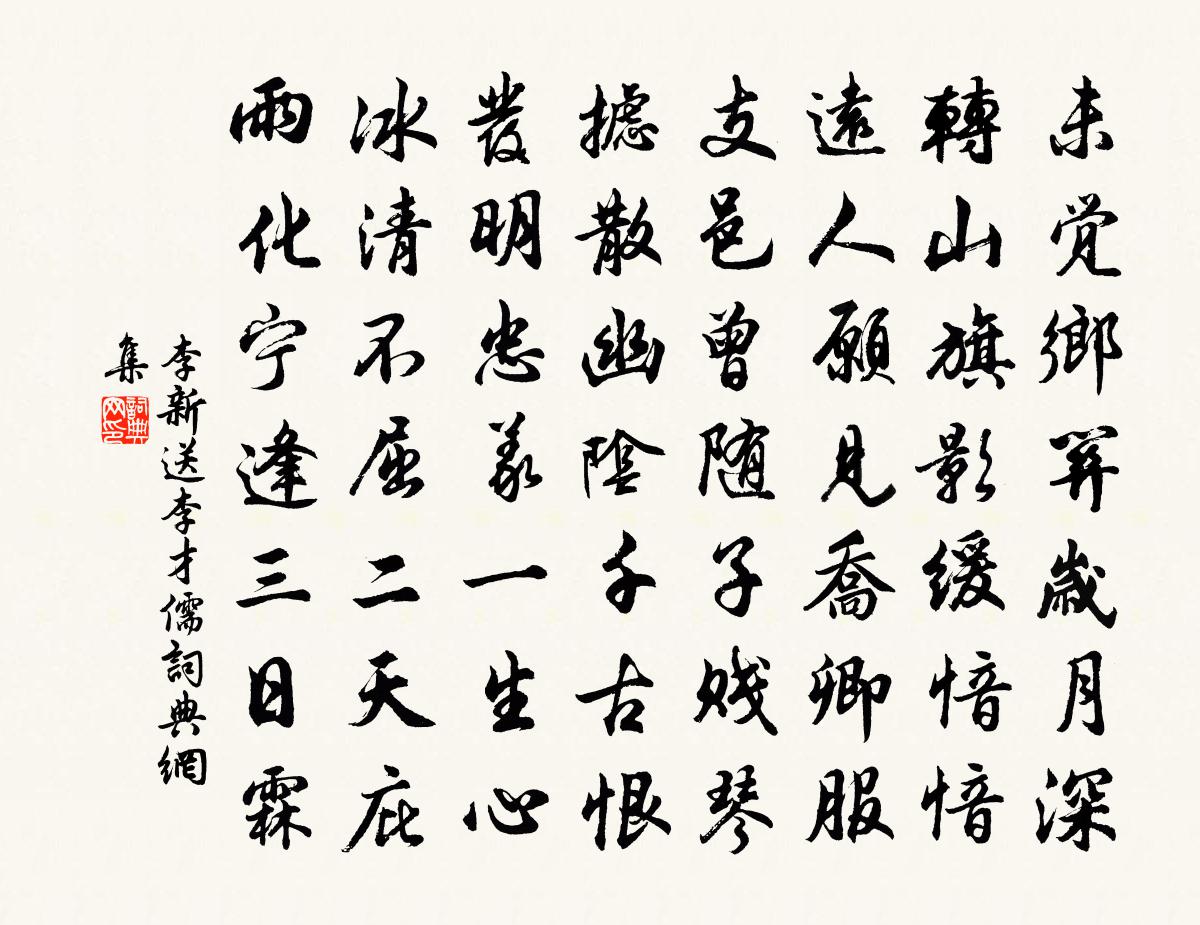 未觉鄉關歲月深
轉山旗影緩愔愔
遠人願見喬卿服
支邑曾随子賎琴
攄散幽陰千古恨
發明忠義一生心
冰清不屈二天庇
雨化宁逢三日霖
李新送李才儒詞典網
集
詞典网印